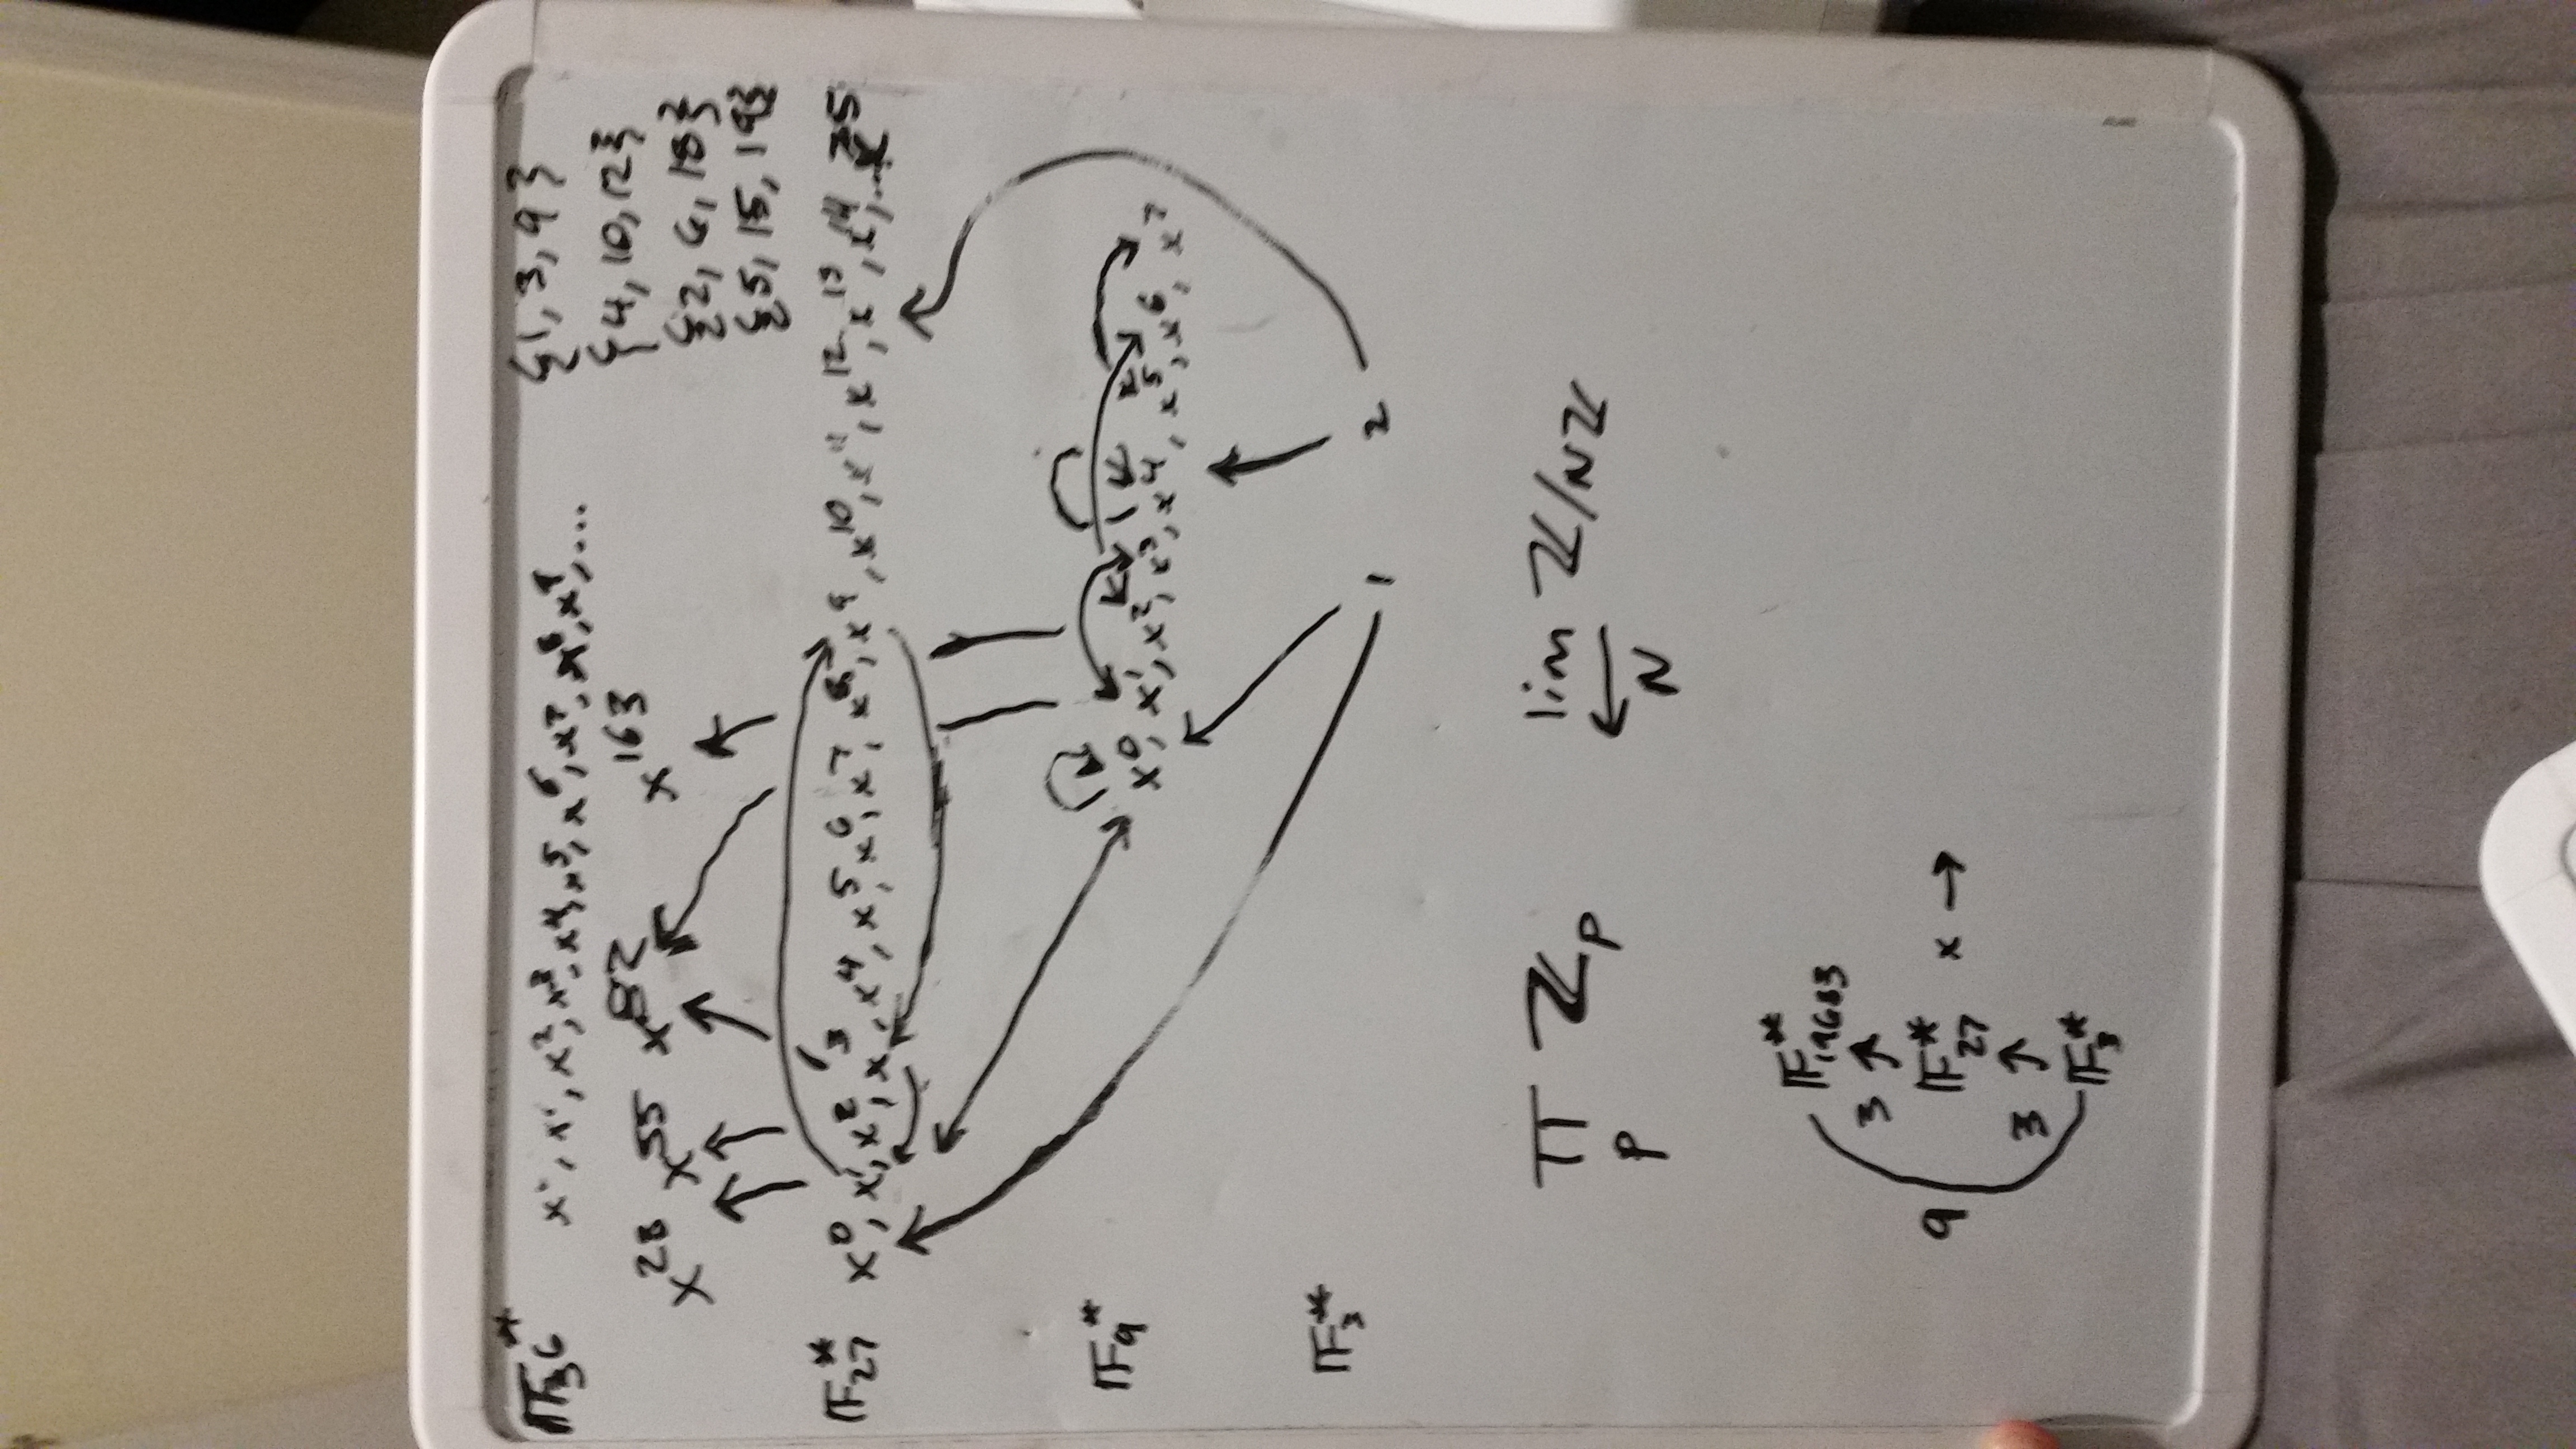 𝔽₃6* x⁰, x¹, x², x³, x⁴, x⁵, x⁶, x⁷, x⁸, x⁹, ... {1, 3, 9}
{4, 10, 12}
x²⁸ x⁵⁵ x⁸² x¹⁶³ {2, 6, 18}
{5, 15, 19}
𝔽₂₇* x⁰, x¹, x², x³, x⁴, x⁵, x⁶, x⁷, x⁸, x⁹, x¹⁰, x¹¹, x¹², x¹³, x¹⁴, ... x²⁵
𝔽₉* x⁰, x¹, x², x³, x⁴, x⁵, x⁶, x⁷
𝔽₃* 1 2
∏ ℤₚ lim ℤ/Nℤ
p ← N
𝔽₁₉₆₈₃*
3 ↑
9 𝔽₂₇* x →
3 ↑
𝔽₃*